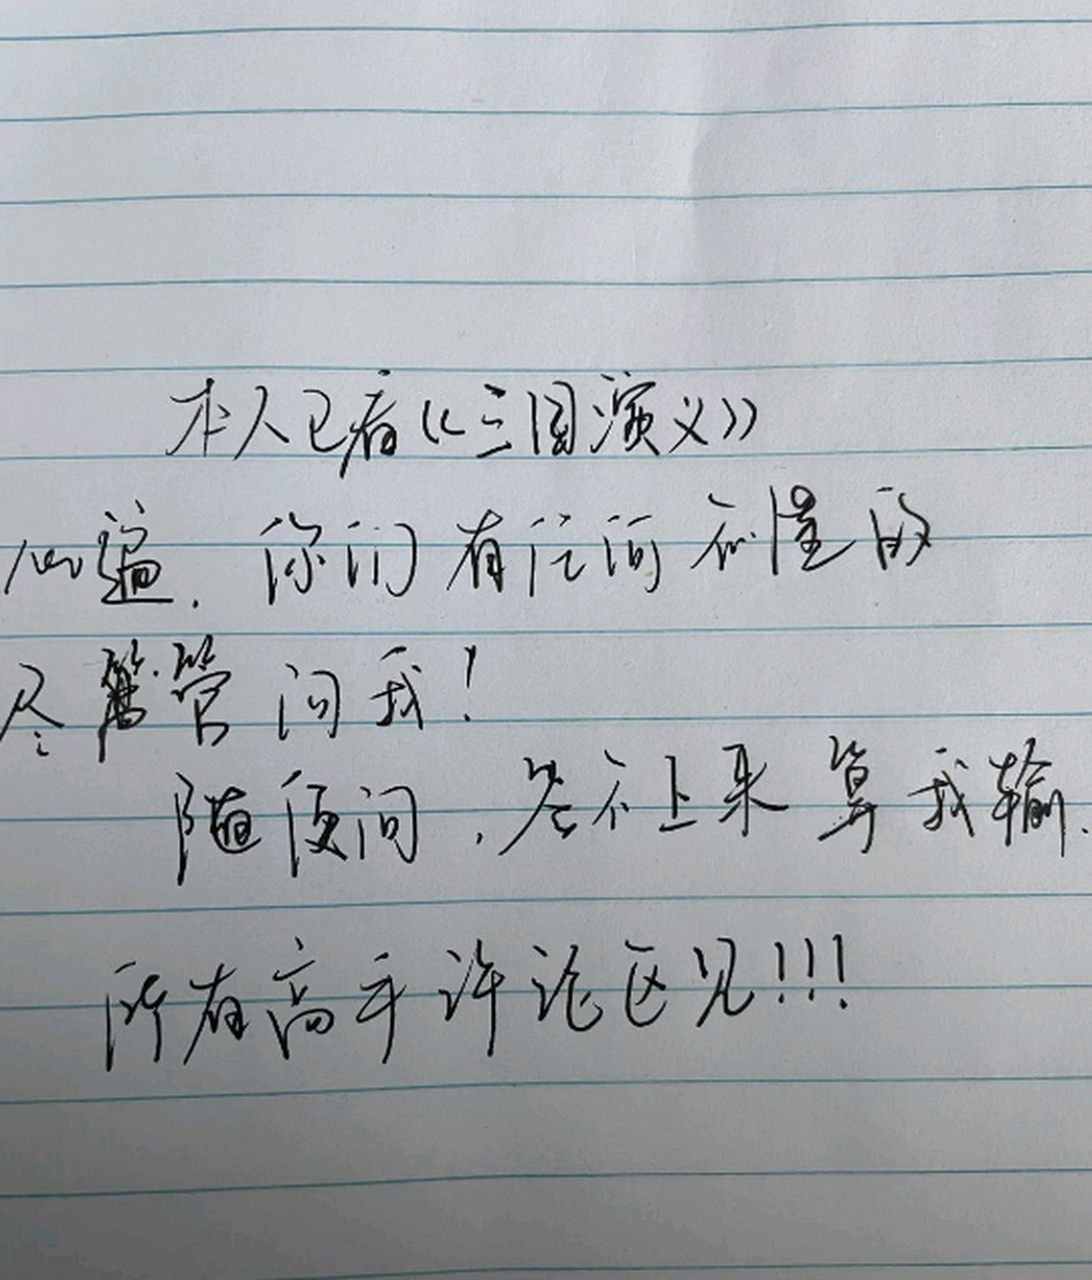 本人已看《三国演义》
100遍.你们有任何不懂的
尽管问我!
随便问,答不上来算我输.
所有高手评论区见!!!